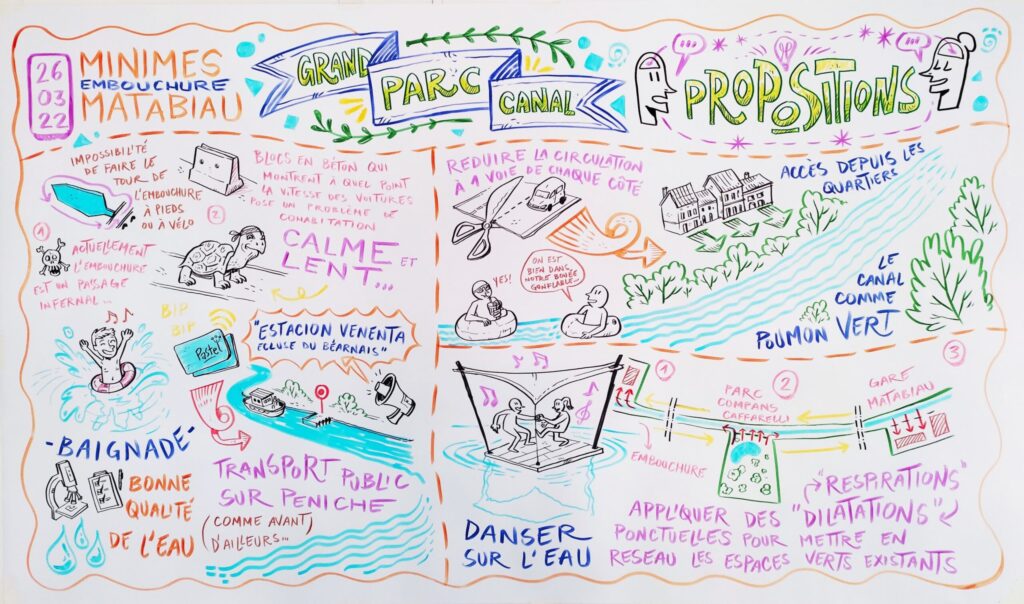 26
03
22
MINIMES
EMBOUCHURE
MATABIAU
GRAND
PARC
CANAL
PROPOSITIONS
IMPOSSIBILITÉ
DE FAIRE LE
TOUR DE
L'EMBOUCHURE
À PIEDS
OU À VÉLO
BLOCS EN BÉTON QUI
MONTRENT À QUEL POINT
LA VITESSE DES VOITURES
POSE UN PROBLÈME DE
COHABITATION
2
1
ACTUELLEMENT
L'EMBOUCHURE
EST UN PASSAGE
INFERNAL...
CALME ET
LENT...
BIP
BIP
Pastel
"ESTACION VENENTA
ECLUSE DU BÉARNAIS"
-BAIGNADE-
BONNE
QUALITÉ
DE L'EAU
TRANSPORT PUBLIC
SUR PENICHE
(COMME AVANT)
D'AILLEURS...
REDUIRE LA CIRCULATION
À 1 VOIE DE CHAQUE CÔTÉ
YES!
ON EST
BIEN DANS
NOTRE BOUÉE
GONFLABLE...
ACCÈS DEPUIS LES
QUARTIERS
LE
CANAL
COMME
POUMON VERT
DANSER
SUR L'EAU
1
EMBOUCHURE
PARC
COMPANS
CAFFARELLI
2
GARE
MATABIAU
3
APPLIQUER DES
"RESPIRATIONS"
"DILATATIONS"
PONCTUELLES POUR METTRE EN
RESEAU LES ESPACES VERTS EXISTANTS